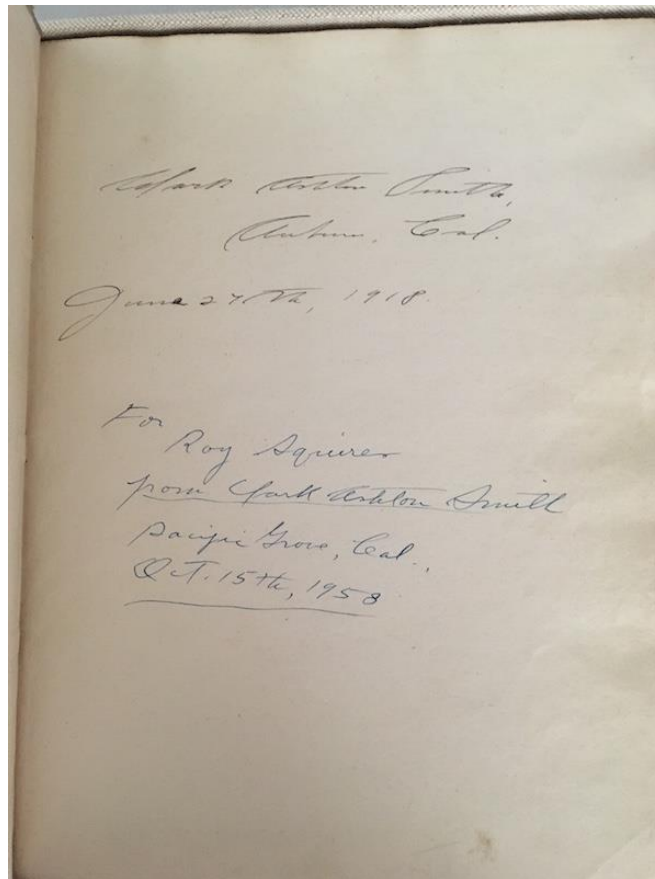 Clark Ashton Smith,
Auburn, Cal.
June 27th, 1918.
For
Roy Squires
from Clark Ashton Smith
Pacific Grove, Cal.,
Oct. 15th, 1958